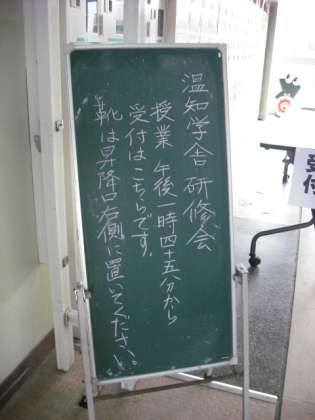 温知学舎 研修会
授業 午後一時四十五分から
受付はこちらです。
靴は昇降口右側に置いてください。
受付